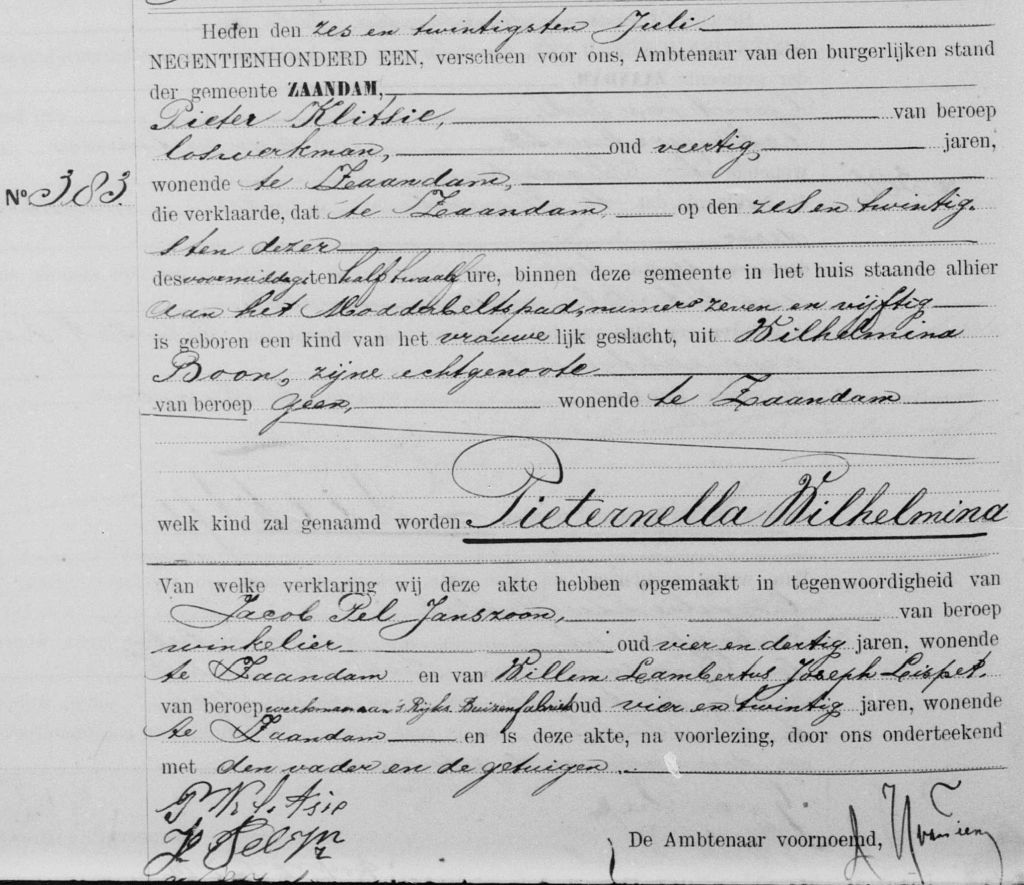 Heden den zes en twintigsten Juli
NEGENTIENHONDERD EEN, verscheen voor ons, Ambtenaar van den burgerlijken stand
der gemeente ZAANDAM,
Pieter Klitsie, van beroep
loswerkman, oud veertig jaren,
No 383. wonende te Zaandam,
die verklaarde, dat te Zaandam op den zes en twintig-
sten dezer
des voormiddags ten half twaalf ure, binnen deze gemeente in het huis staande alhier
aan het Modderbeltspad, numero zeven en vijftig
is geboren een kind van het vrouwelijk geslacht, uit Wilhelmina
Boon, zijne echtgenoote
van beroep geen, wonende te Zaandam
welk kind zal genaamd worden Pieternella Wilhelmina
Van welke verklaring wij deze akte hebben opgemaakt in tegenwoordigheid van
Jacob Pel Janszoon, van beroep
winkelier oud vier en dertig jaren, wonende
te Zaandam en van Willem Lambertus Joseph
van beroep werkman aan 's Rijks Buizenfabriek oud vier en twintig jaren, wonende
te Zaandam en is deze akte, na voorlezing, door ons onderteekend
met den vader en de getuigen.
P Klitsie
J Pel Jz
De Ambtenaar voornoemd,